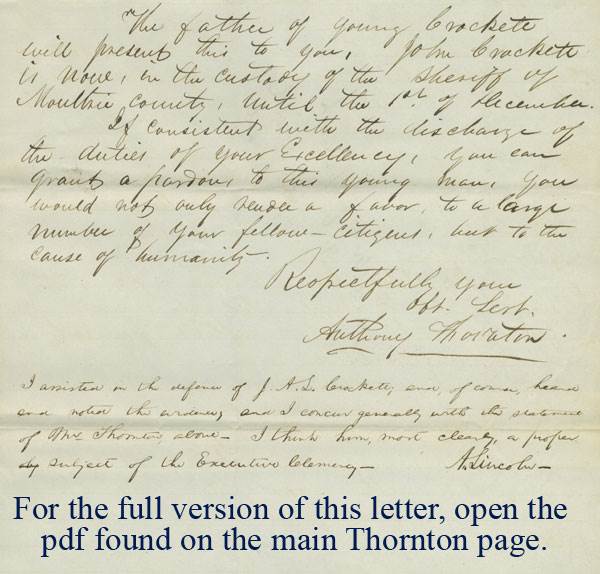 The father of young Crockett
will present this to you, John Crockett
is now, in the custody of the Sheriff of
Moultrie County, until the 1st of December.
If consistent with the discharge of
the duties of your Excellency, you can
grant a pardon, to this young man, you
would not only render a favor, to a large
number of your fellow-citizens, but to the
cause of humanity.
Respectfully your
Obt. Servt.
Anthony Thornton.
I assisted in the defence of J. A. L. Crockett, and, of course, heard
and noted the evidence, and I concur generally with the statement
of Mr Thornton, above— I think him, most clearly, a proper
subject of the Executive clemency—
A. Lincoln—
For the full version of this letter, open the
pdf found on the main Thornton page.